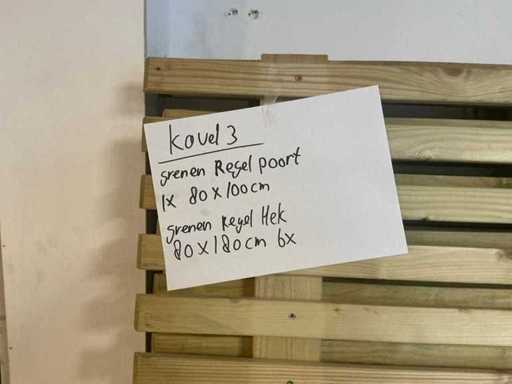 Kavel 3
grenen Regel poort
1x 80 x 100 cm
grenen Regel Hek
80 x 180 cm 6x